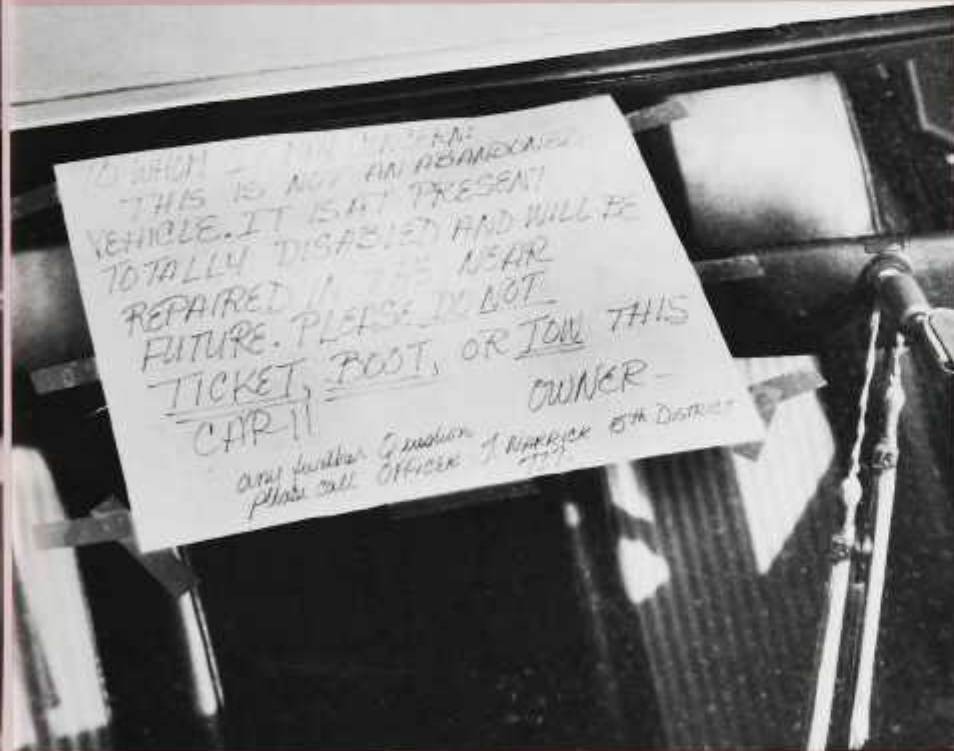 TO WHOM IT MAY CONCERN:
THIS IS NOT AN ABANDONED
VEHICLE. IT IS AT PRESENT
TOTALLY DISABLED AND WILL BE
REPAIRED IN THE NEAR
FUTURE. PLEASE DO NOT
TICKET, BOOT, OR TOW THIS
CAR!!
OWNER-
any further Question
please call OFFICER J WARRICK 5TH DISTRICT